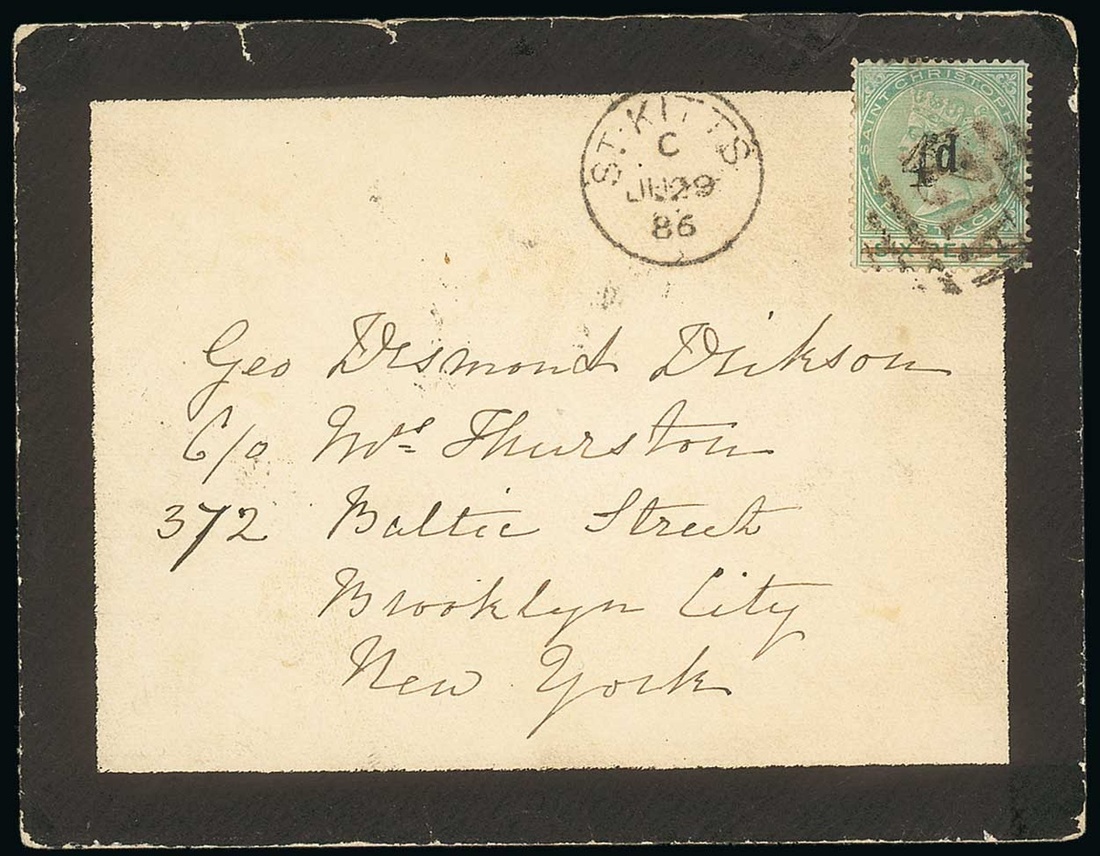 SAINT CHRISTOPHER
4d.
SIX PENCE
ST. KITTS
C
JU 29
86
Geo Desmond Dickson
C/o Mrs Thurston
372 Baltic Street
Brooklyn City
New York